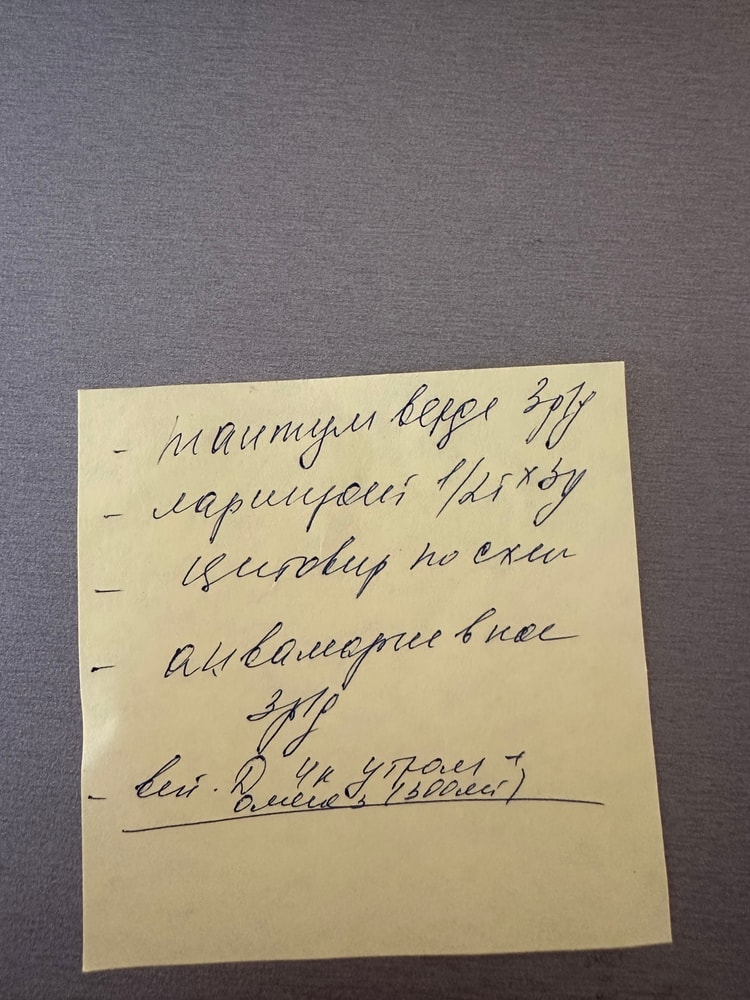 - тантум верде 3р/д
- ларипронт 1/2т х 3
- цитовир по схем
- аквамарис в нос
3р/д
- вит. Д 4к утром +
омега 3 (300мг)